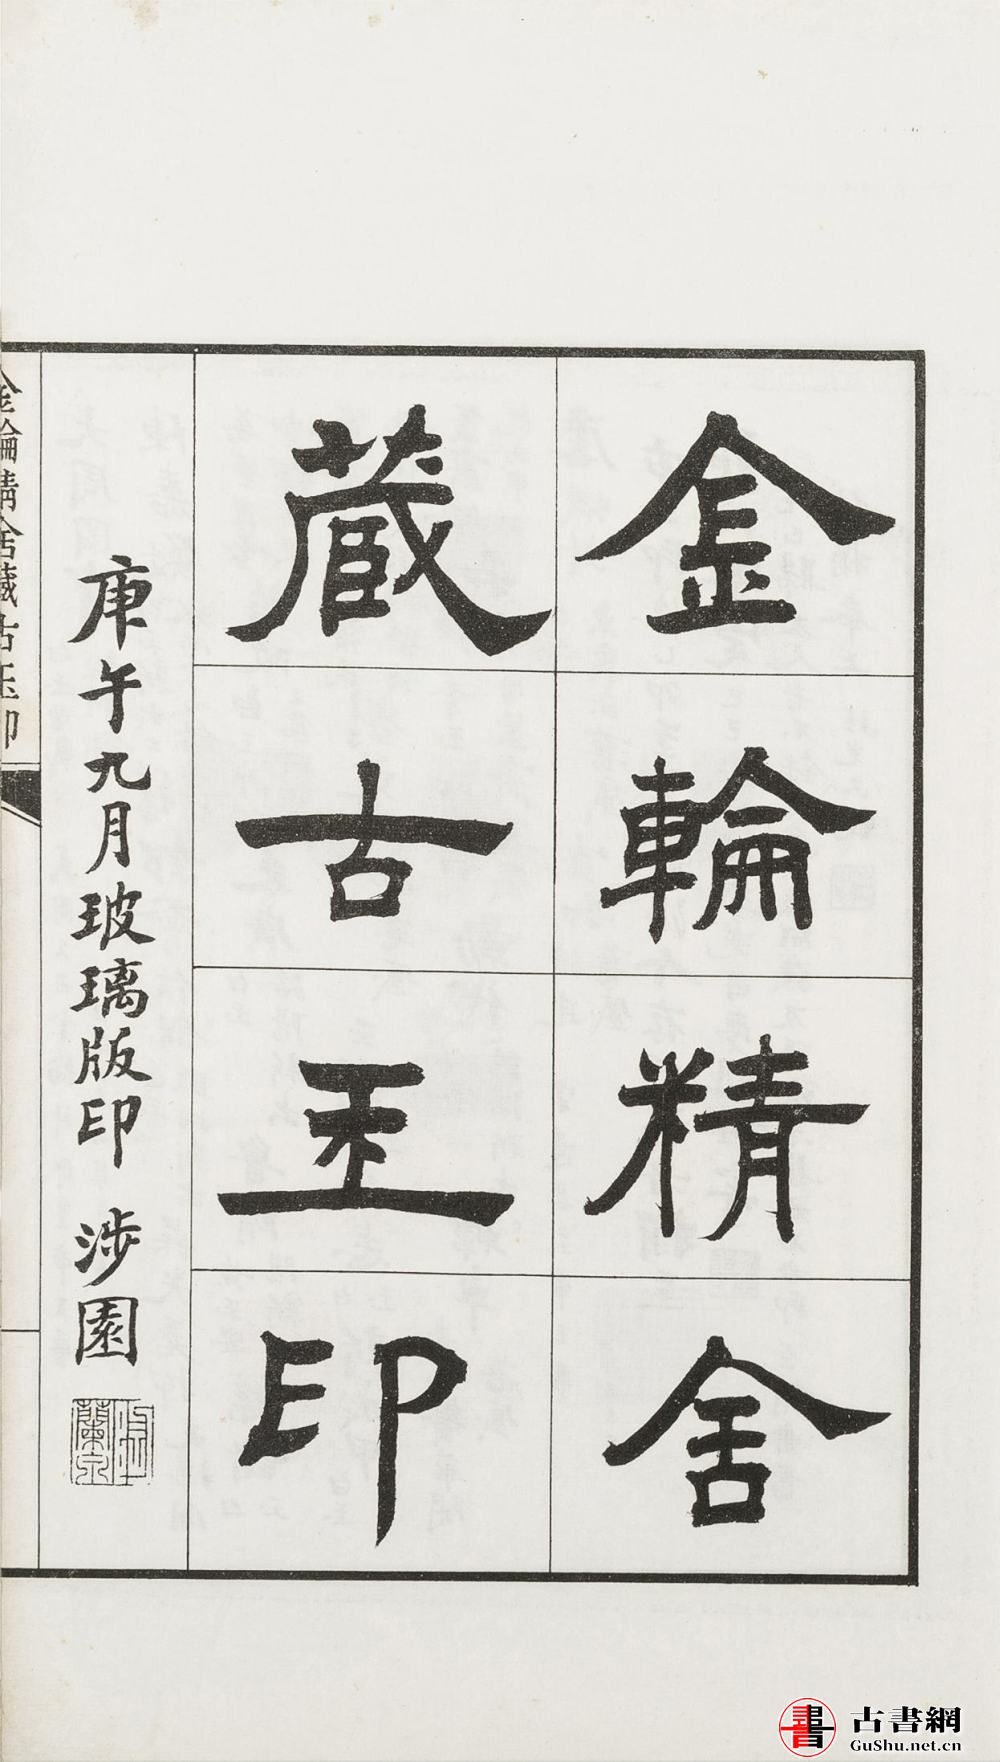 金輪精舍
藏古玉印
庚午九月玻璃版印 涉園
金輪精舍藏古玉印
古書網
GuShu.net.cn